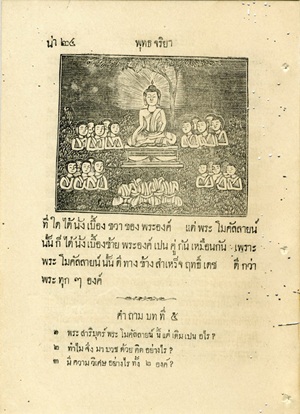 น่า ๒๔
พุทธ จริยา
ที่ ใด ได้ นั่ง เบื้อง ขวา ของ พระองค์ แต่ พระ โมคัลลายน์
นั้น ก็ ได้ นั่ง เบื้อง ซ้าย พระองค์ เปน คู่ กัน เหมือนกัน เพราะ
พระ โมคัลลายน์ นั้น ดี ทาง ข้าง สำเหร็จ ฤทธิ์ เดช ดี กว่า
พระ ทุก ๆ องค์
คำ ถาม บท ที่ ๕
๑ พระ สาริบุตร์ พระ โมคัลลายน์ นี้ แต่ เดิม เปน อะไร ?
๒ ทำไม จึ่ง มา บวช ด้วย คิด อย่างไร ?
๓ มี ความ วิเศษ อย่างไร ทั้ง ๒ องค์ ?